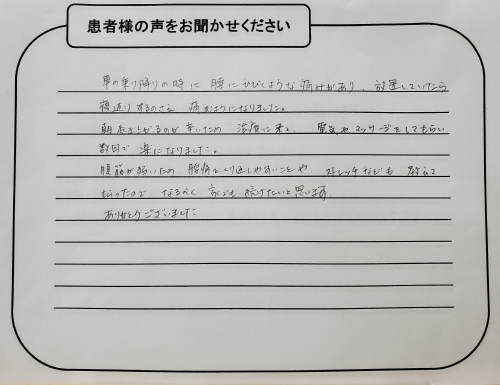 患者様の声をお聞かせください
車の乗り降りの時に 腰にひびくような痛みがあり、放置していたら
寝返りするのさえ 痛むようになりました。
朝起き上がるのが辛いため 治療に来て、電気やマッサージをしてもらい
数日で 楽になりました。
腹筋が弱いため 腰痛をくり返しやすいことや、ストレッチなども 教えて
もらったので なるべく 家でも 続けたいと思います。
ありがとうございました